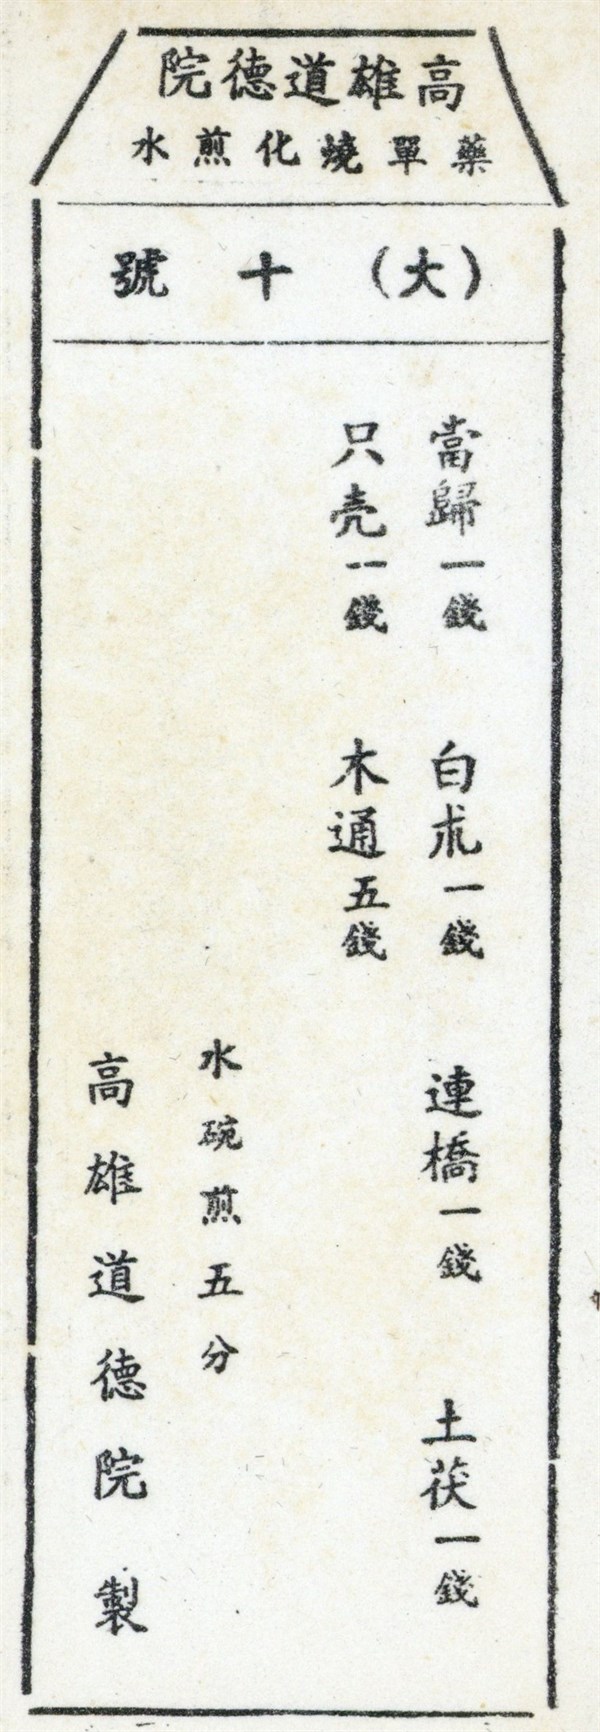 高雄道德院
藥單燒化煎水
（大）十號
當歸一錢 白朮一錢 連橋一錢 土茯一錢
只壳一錢 木通五錢
水碗煎五分
高雄道德院製